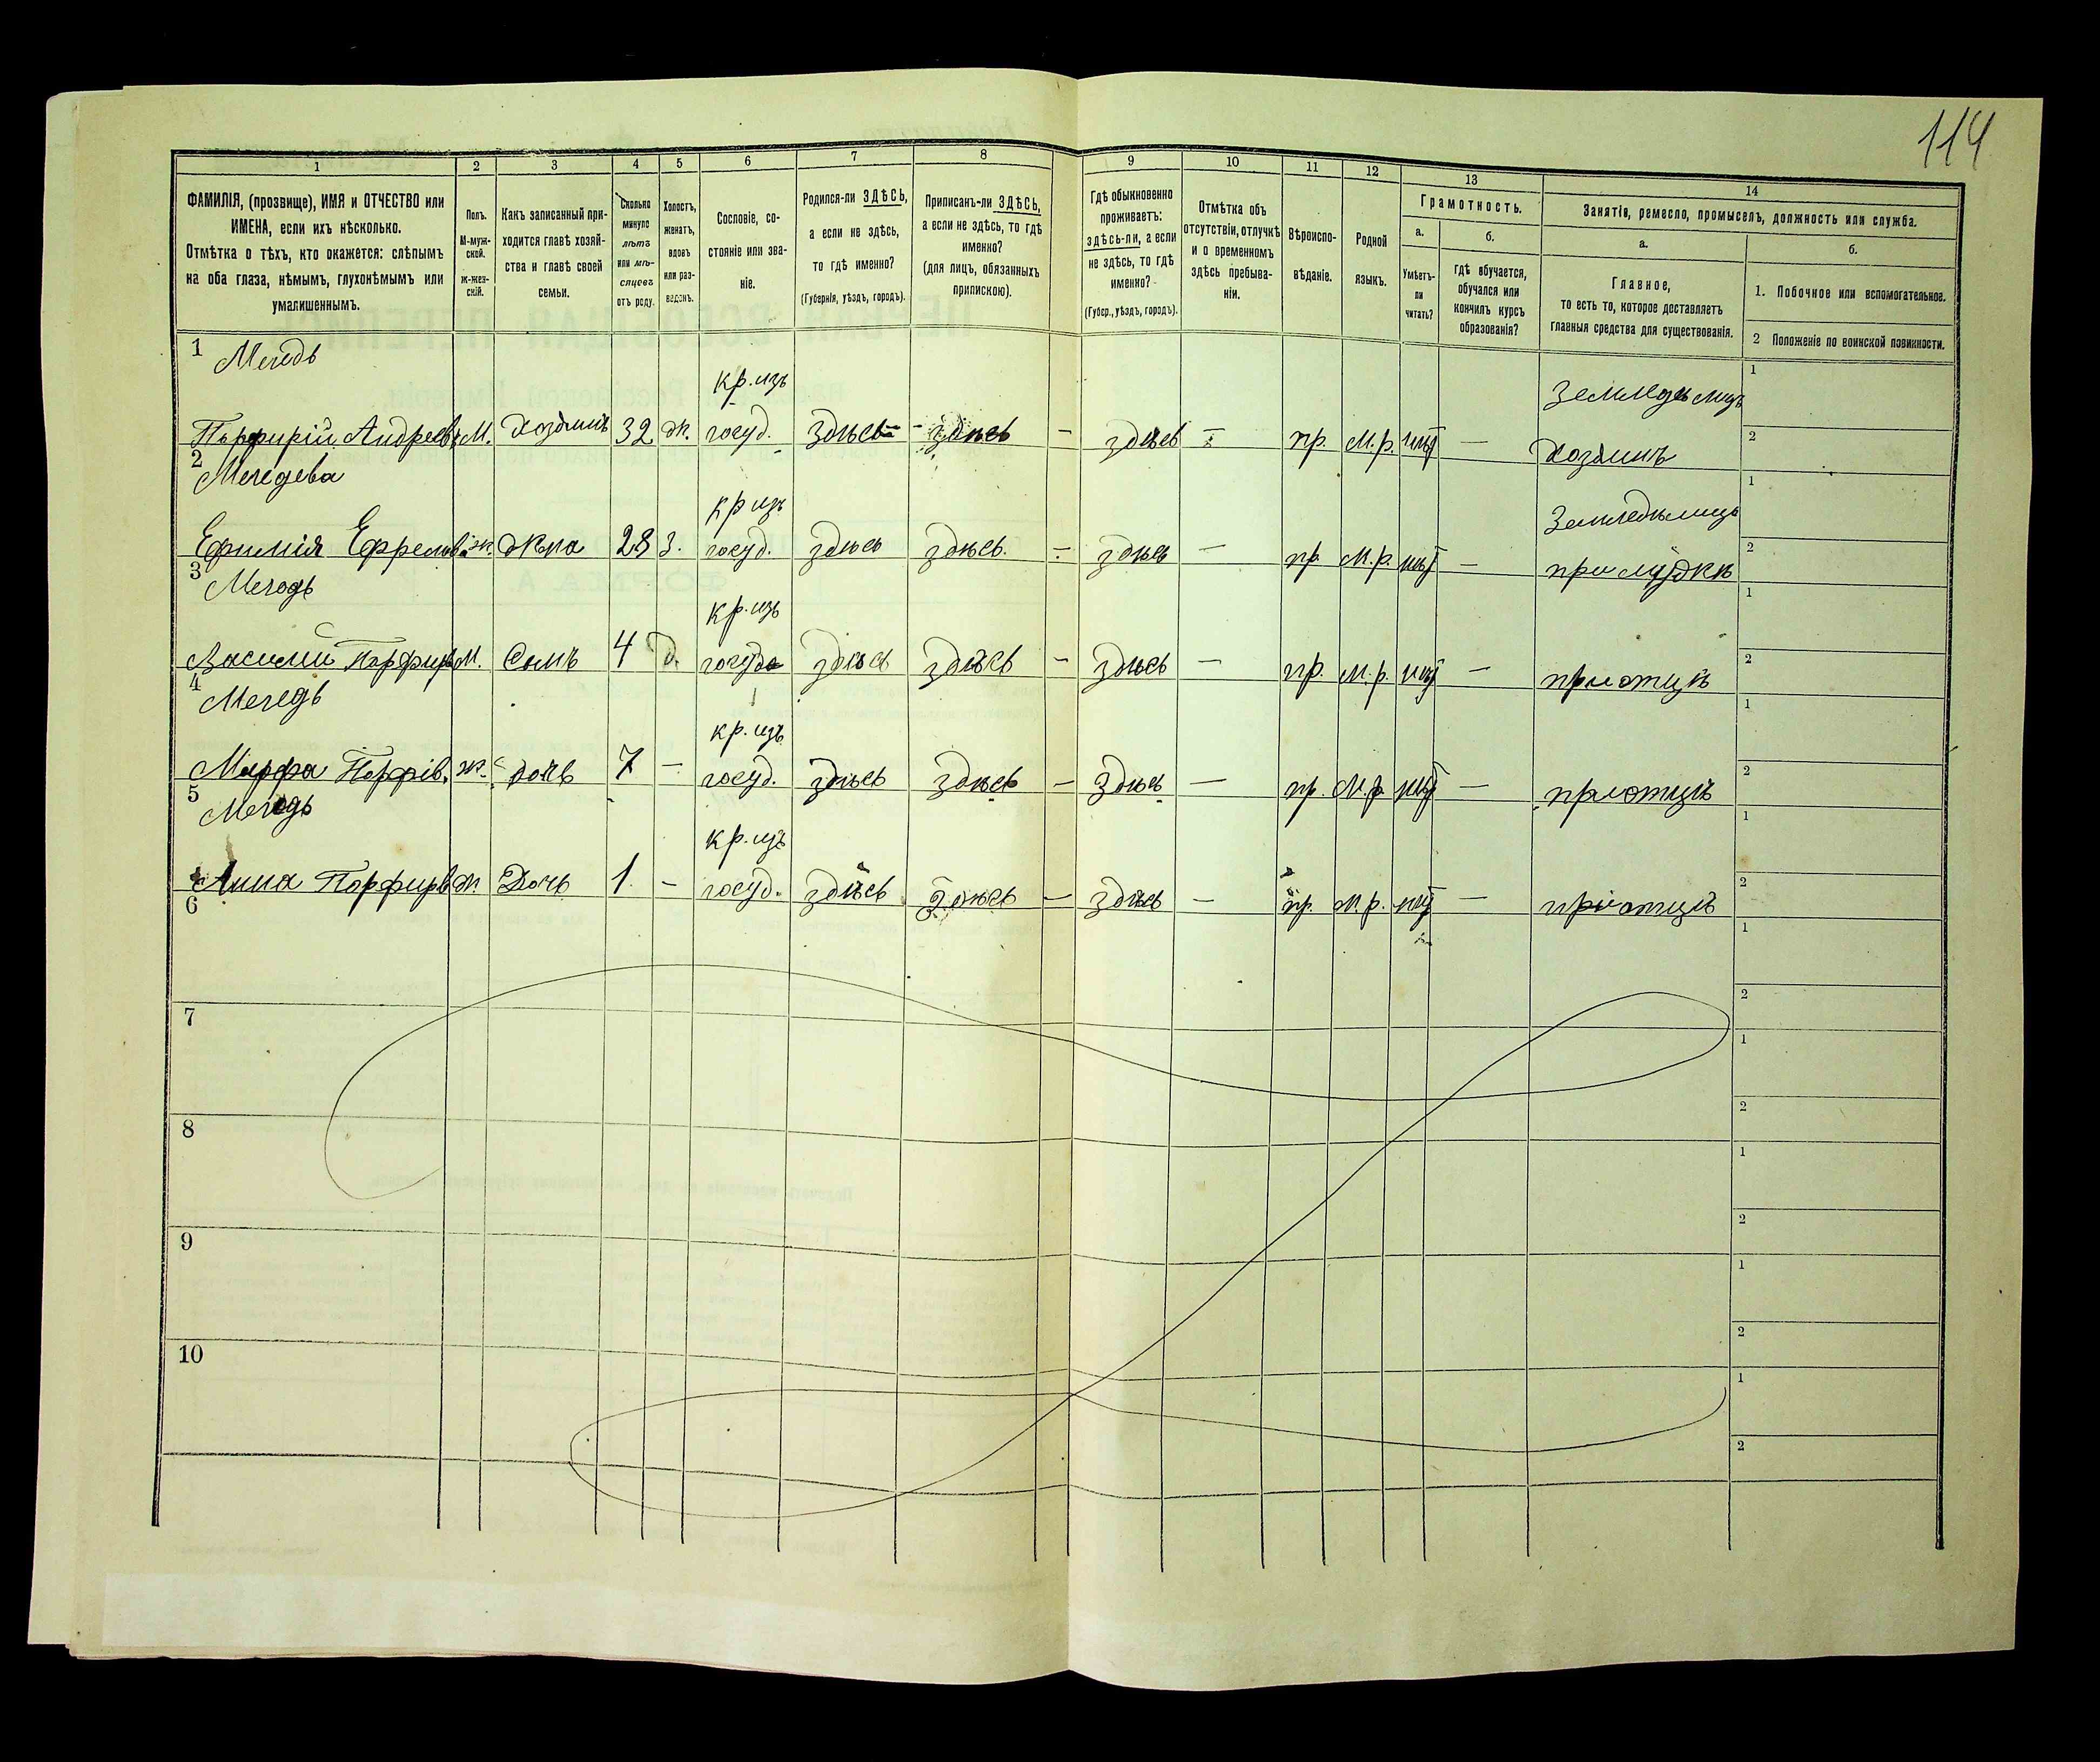 114
1 2 3 4 5 6 7 8 9 10 11 12 13 14
ФАМИЛІЯ, (прозвище), ИМЯ и ОТЧЕСТВО или
ИМЕНА, если ихъ нѣсколько.
Отмѣтка о тѣхъ, кто окажется: слѣпымъ
на оба глаза, нѣмымъ, глухонѣмымъ или
умалишеннымъ.
Полъ.
М-муж-
ской.
ж-жен-
скій.
Какъ записанный при-
ходится главѣ хозяй-
ства и главѣ своей
семьи.
Сколько
минуло
лѣтъ
или мѣ-
сяцевъ
отъ роду.
Холостъ,
женатъ,
вдовъ
или раз-
веденъ.
Сословіе, со-
стояніе или зва-
ніе.
Родился-ли ЗДѢСЬ,
а если не здѣсь,
то гдѣ именно?
(Губернія, уѣздъ, городъ).
Приписанъ-ли ЗДѢСЬ,
а если не здѣсь, то гдѣ
именно?
(для лицъ, обязанныхъ
припискою).
Гдѣ обыкновенно
проживаетъ:
здѣсь-ли, а если
не здѣсь, то гдѣ
именно?
(Губер., уѣздъ, городъ).
Отмѣтка объ
отсутствіи, отлучкѣ
и о временномъ
здѣсь пребыва-
ніи.
Вѣроиспо-
вѣданіе.
Родной
языкъ.
Грамотность.
а.
Умѣетъ-
ли
читать?
б.
Гдѣ обучается,
обучался или
кончилъ курсъ
образованія?
Занятіе, ремесло, промыселъ, должность или служба.
а.
Главное,
то есть то, которое доставляетъ
главныя средства для существованія.
б.
1. Побочное или вспомогательное.
2 Положеніе по воинской повинности.
1 Мегедь кр. изъ 1
Порфирій Андреев. М. Хозяинъ 32 ж. госуд. здѣсь - здѣсь - здѣсь - пр. М.р. нѣт - Хозяинъ 2
2 Мегедева кр изъ 1
Ефимія Ефремов. ж. Жена 28 з. госуд. здѣсь здѣсь. - здѣсь - пр. М.р. нѣт - при мужѣ 2
3 Мегедь кр. изъ 1
Василій Порфир. М. Сынъ 4 госуд здѣсь здѣсь - здѣсь - пр. М.р. нѣт - при отцѣ 2
4 Мегедь кр. изъ 1
Марфа Порфир. ж. дочь 7 - госуд. здѣсь здѣсь - здѣсь - пр. М.р. нѣт - при отцѣ 2
5 Мегедь кр. изъ 1
Анна Порфирв ж Дочь 1 - госуд. здѣсь здѣсь - здѣсь - пр. М.р. нѣт - при отцѣ 2
6 1
2
7 1
2
8 1
2
9 1
2
10 1
2